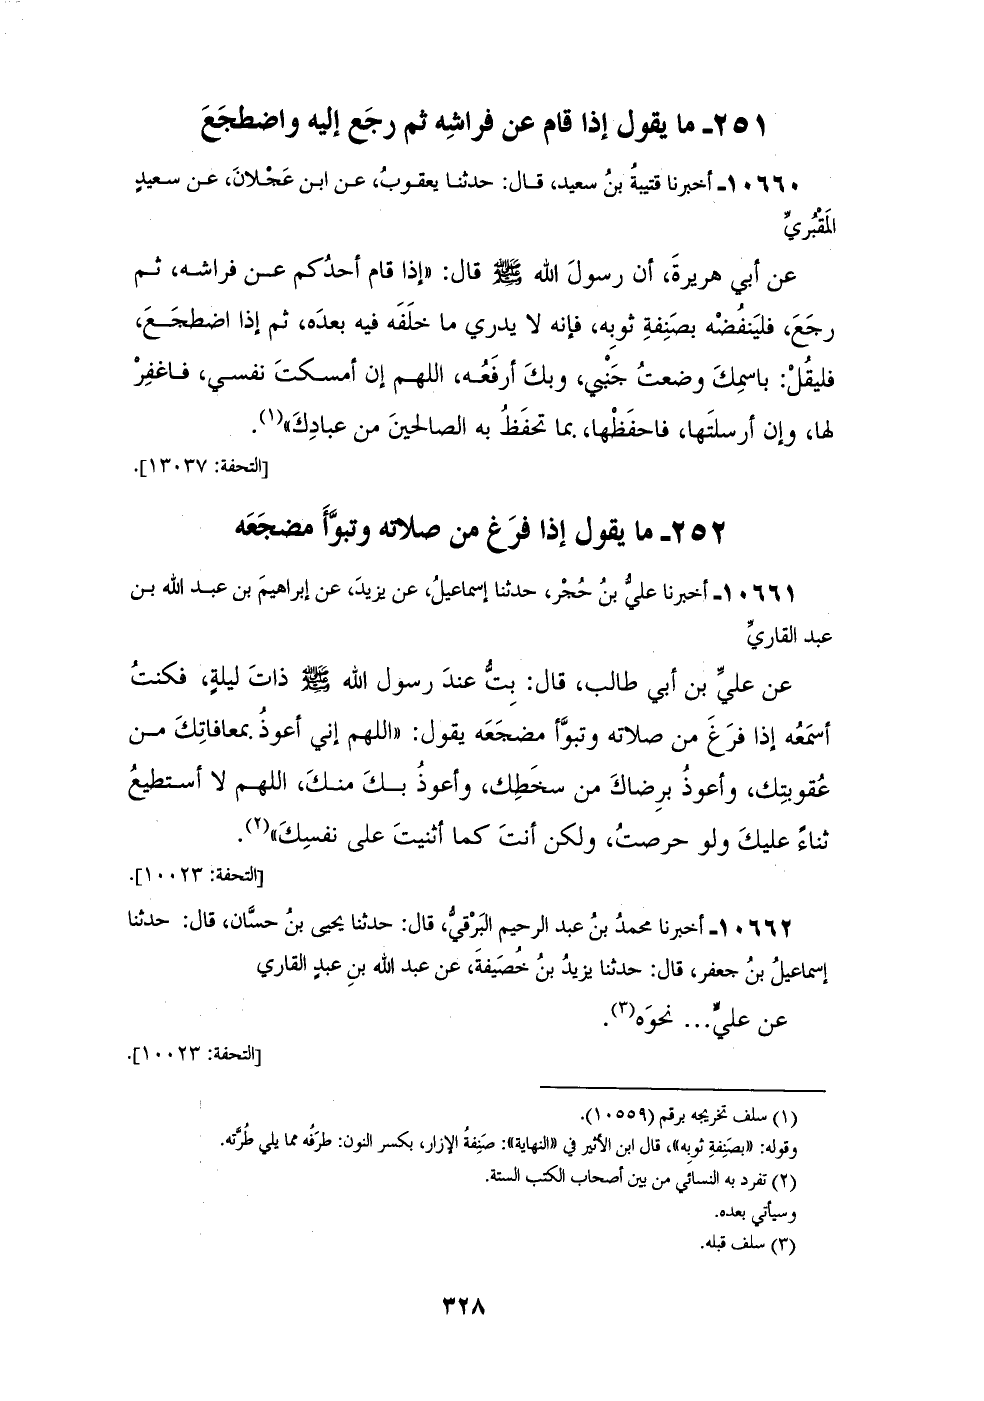 ٢٥١ـ ما يقول إذا قام عن فراشِه ثم رجَع إليه واضطجَعَ
١٠٦٦٠ـ أخبرنا قتيبةُ بنُ سعيد، قال: حدثنا يعقوبُ، عن ابن عَجْلانَ، عن سعيدٍ
المَقْبُريِّ
عن أبي هريرةَ، أن رسولَ الله ﷺ قال: «إذا قام أحدُكم عن فراشه، ثم
رجَعَ، فليَنفُضْه بصَنِفةِ ثوبِه، فإنه لا يدري ما خلَفَه فيه بعدَه، ثم إذا اضطجَعَ،
فليقُلْ: باسمِكَ وضعتُ جَنْبي، وبكَ أرفَعُه، اللهم إن أمسكتَ نفسي، فاغفِرْ
لها، وإن أرسلتَها، فاحفَظْها، بما تحفَظُ به الصالحينَ من عبادِكَ»(١).
[التحفة: ١٣٠٣٧].
٢٥٢ـ ما يقول إذا فرَغ من صلاته وتبوَّأَ مضجَعَه
١٠٦٦١ـ أخبرنا عليُّ بنُ حُجْر، حدثنا إسماعيلُ، عن يزيدَ، عن إبراهيمَ بن عبد الله بن
عبد القاريِّ
عن عليِّ بن أبي طالب، قال: بِتُّ عندَ رسول الله ﷺ ذاتَ ليلةٍ، فكنتُ
أسمَعُه إذا فرَغَ من صلاته وتبوَّأ مضجَعَه يقول: «اللهم إني أعوذُ بمعافاتِكَ من
عُقوبتِك، وأعوذُ برِضاكَ من سخَطِك، وأعوذُ بكَ منكَ، اللهم لا أستطيعُ
ثناءً عليكَ ولو حرصتُ، ولكن أنتَ كما أثنيتَ على نفسِكَ»(٢).
[التحفة: ١٠٠٢٣].
١٠٦٦٢ـ أخبرنا محمدُ بنُ عبد الرحيم البَرْقيُّ، قال: حدثنا يحيى بنُ حسَّان، قال: حدثنا
إسماعيلُ بنُ جعفر، قال: حدثنا يزيدُ بنُ خُصَيفةَ، عن عبد الله بنِ عبدٍ القاري
عن عليٍّ... نحوَه(٣).
[التحفة: ١٠٠٢٣].
(١) سلف تخريجه برقم (١٠٥٥٩).
وقوله: «بصَنِفةِ ثوبِه»، قال ابن الأثير في «النهاية»: صَنِفةُ الإزار، بكسر النون: طرَفُه مما يلي طُرَّته.
(٢) تفرد به النسائي من بين أصحاب الكتب الستة.
وسيأتي بعده.
(٣) سلف قبله.
٣٢٨